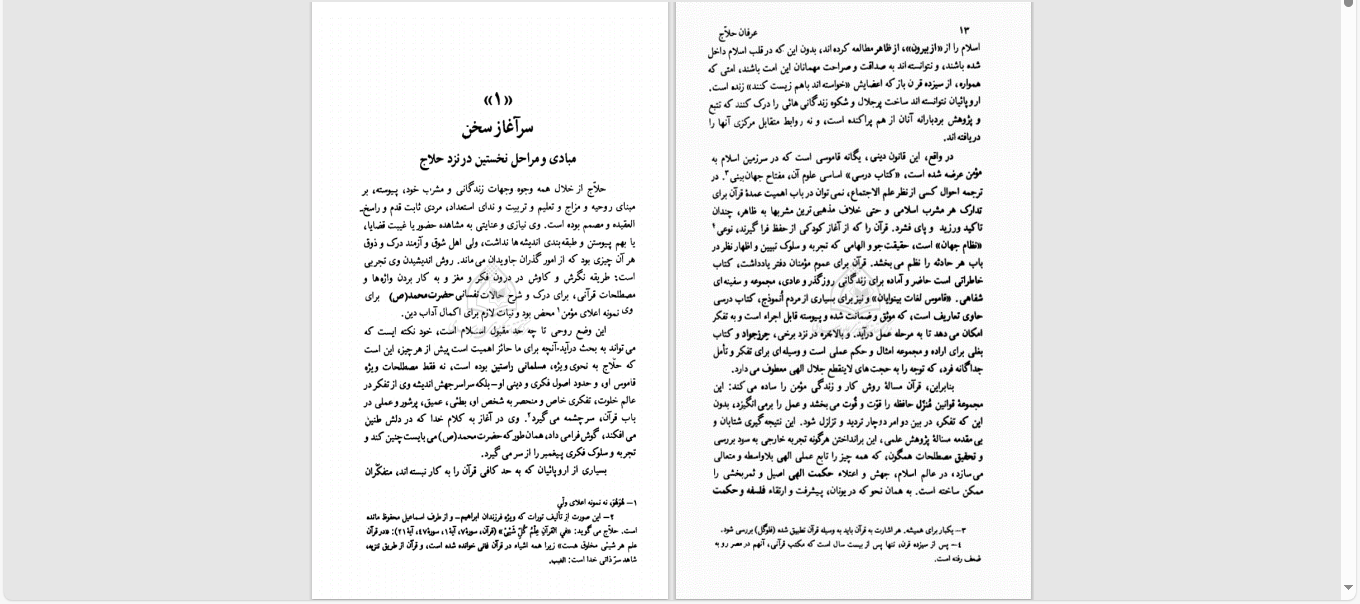 «۱»
سرآغاز سخن
مبادی و مراحل نخستین در نزد حلاج
حلّاج از خلال همه وجوه وجهات زندگانی و مشرب خود، پیوسته، بر
مبنای روحیه و مزاج و تعلیم و تربیت و ندای استعداد، مردی ثابت قدم و راسخ‌ـ
العقیده و مصمم بوده است. وی نیازی و عنایتی به مشاهده حضور یا غیبت قضایا،
یا بهم پیوستن و طبقه‌بندی اندیشه‌ها نداشت، ولی اهل شوق و آزمند درک و ذوق
هر آن چیزی بود که از امور گذران جاویدان می‌ماند. روش اندیشیدن وی تجربی
است: طریقه نگرش و کاوش در درون فکر و مغز و به کار بردن واژه‌ها و
مصطلحات قرآنی، برای درک و شرح حالات نفسانی حضرت محمد(ص) برای
وی نمونه اعلای مؤمن۱ محض بود و نیات لازم برای اکمال آداب دین.
این وضع روحی تا چه حد مقبول اسلام است، خود نکته ایست که
می‌تواند به بحث درآید-آنچه برای ما حائز اهمیت است پیش از هرچیز، این است
که حلّاج به نحوی ویژه، مسلمانی راستین بوده است، نه فقط مصطلحات ویژه
قاموس او، و حدود اصول فکری و دینی او–بلکه سراسر جهش اندیشه وی از تفکر در
عالم خلوت، تفکری خاص و منحصر به شخص او، بطئی، عمیق، پرشور و عملی در
باب قرآن، سرچشمه می‌گیرد۲. وی در آغاز به کلام خدا که در دلش طنین
می‌افکند، گوش فرامی‌داد، همان‌طور که حضرت محمد(ص) می‌بایست چنین کند و
تجربه و سلوک فکری پیغمبر را از سر می‌گیرد.
بسیاری از اروپائیان که به حد کافی قرآن را به کار نبسته‌اند، متفکّران
۱– مُؤمِن، نه نمونه اعلای ولّی
۲– این صورت از تألیف تورات که ویژه فرزندان ابراهیم– و از طرف اسماعیل محفوظ مانده
است. حلّاج می گوید: «فی القرآن علمُ کُلِّ شَیئیْ» (قرآن، سورهٔ ۷، آیهٔ ۱، سورهٔ ۴۷، آیهٔ ۲۱): «در قرآن
علم هر شیئی مخلوق هست» زیرا همه اشیاء در قرآن فانی خوانده شده است، و قرآن از طریق تنزیه،
شاهد سرّ ذاتی خدا است: الغیب.
۱۳ عرفان حلّاج
اسلام را از «از بیرون»، از ظاهر مطالعه کرده‌اند، بدون این که در قلب اسلام داخل
شده باشند، و نتوانسته‌اند به صداقت و صراحت مهمانان این امت باشند، امتی که
همواره، از سیزده قرن باز که اعضایش «خواسته‌اند باهم زیست کنند» زنده است.
اروپائیان نتوانسته‌اند ساخت پرجلال و شکوه زندگانی هائی را درک کنند که تتبع
و پژوهش بردبارانه آنان از هم پراکنده است، و نه روابط متقابل مرکزی آنها را
دریافته‌اند.
در واقع، این قانون دینی، یگانه قاموسی است که در سرزمین اسلام به
مؤمن عرضه شده است، «کتاب درسی» اساسی علوم آن، مفتاح جهان‌بینی۳. در
ترجمه احوال کسی از نظر علم الاجتماع، نمی‌توان در باب اهمیت عمدهٔ قرآن برای
تدارک هر مشرب اسلامی و حتی خلاف مذهبی‌ترین مشربها به ظاهر، چندان
تأکید ورزید و پای فشرد. قرآن را که از آغاز کودکی از حفظ فرا گیرند، نوعی۴
«نظام جهان» است، حقیقت‌جو و الهامی که تجربه و سلوک تبیین و اظهار نظر در
باب هر حادثه را نظم می‌بخشد. قرآن برای عموم مؤمنان دفتر یادداشت، کتاب
خاطراتی است حاضر و آماده برای زندگانی روزگذر و عادی، مجموعه و سفینه‌ای
شفاهی. «قاموس لغات بینوایان» و نیز برای بسیاری از مردم اُنموذج، کتاب درسی
حاوی تعاریف است، که موثق و ضمانت شده و پیوسته قابل اجراء است و به تفکر
امکان می‌دهد تا به مرحله عمل درآید. و بالاخره در نزد برخی، حرزجواد و کتاب
بغلی برای اراده و مجموعه امثال و حکم عملی است و وسیله‌ای برای تفکر و تأمل
جداگانه فرد، که توجه را به حجت‌های لاینقطع جلال الهی معطوف می‌دارد.
بنابراین، قرآن مسالهٔ روش کار و زندگی مؤمن را ساده می‌کند: این
مجموعهٔ قوانین مُنزَل حافظه را قوّت و قُوت می‌بخشد و عمل را برمی‌انگیزد، بدون
این که تفکر، در بین دو امر دوچار تردید و تزلزل شود. این نتیجه‌گیری شتابان و
بی‌مقدمه مسالهٔ پژوهش علمی، این برانداختن هرگونه تجربه خارجی به سود بررسی
و تحقیق مصطلحات همگون، که همه چیز را تابع عملی الهی بلاواسطه و متعالی
می‌سازد، در عالم اسلام، جهش و اعتلاء حکمت الهی اصیل و ثمربخشی را
ممکن ساخته است. به همان نحو که در یونان، پیشرفت و ارتقاء فلسفه و حکمت
۳– یکبار برای همیشه. هر اشارت به قرآن باید به وسیله قرآن تطبیق شده (فلوگل) بررسی شود.
۴– پس از سیزده قرن، تنها پس از بیست سال است که مکتب قرآنی، آنهم در مصر رو به
ضعف رفته است.